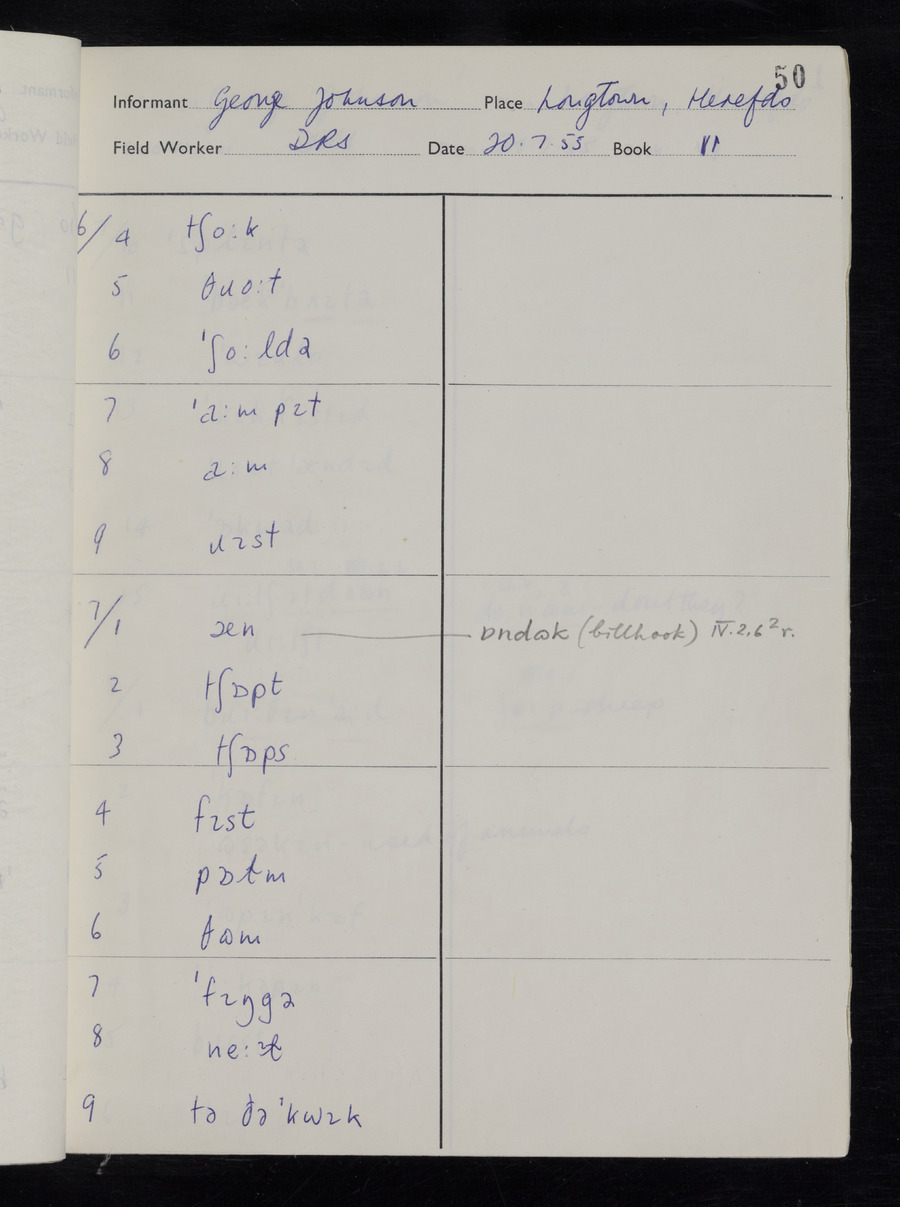 50
Informant George Johnson Place Longtown, Herefds
Field Worker DRS Date 20.7.55 Book VI
6/4 tʃoːk
5 θɹoːt
6 ˈʃoːldə
7 ˈəːm pɪt
8 əːm
9 ɹɪst
7/1 æn ɒndʊk (billhook) IV.2,6²r.
2 tʃɒpt
3 tʃɒps
4 fɪst
5 pɒtm
6 θʊm
7 ˈfɪŋgə
8 neːɪ
9 tə ðə ˈkwɪk